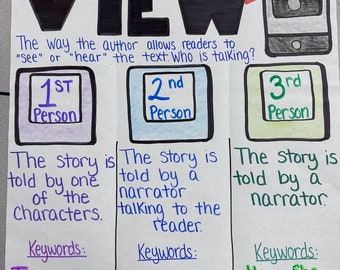 VIEW
The way the author allows readers to
"see" or "hear" the text. Who is talking?
1ST
Person
The story is
told by one
of the
Characters.
Keywords:
2nd
Person
The story is
told by a
narrator
talking to the
reader.
Keywords:
3rd
Person
The story is
told by a
narrator.
Keywords: